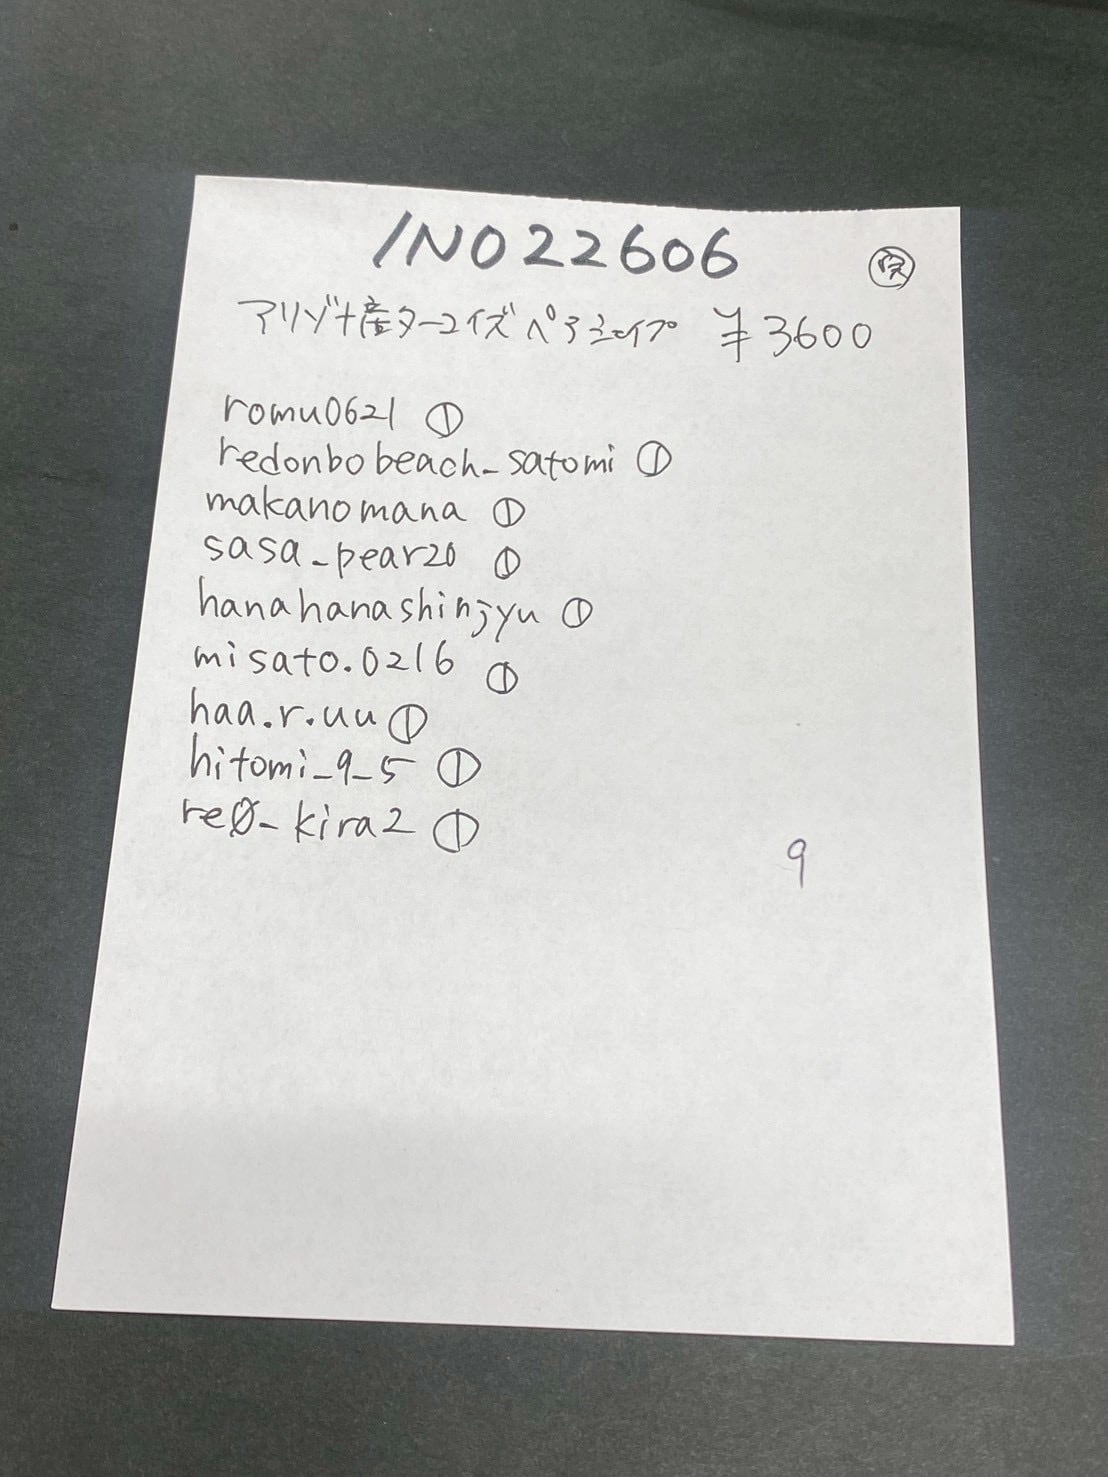 INO22606
アリゾナ産ターコイズ ペアシェイプ ¥3600
romu0621 ①
redonbobeach_satomi ①
makanomana ①
sasa_pear20 ①
hanahanashinjyu ①
misato.0216 ①
haa.r.uu ①
hitomi_9_5 ①
re0_kira2 ①
9